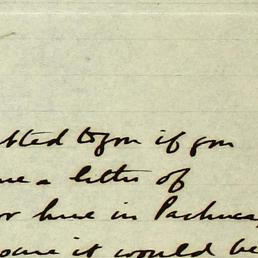 bted to you if you
me a letter of
or here in Pachuca,
it would be